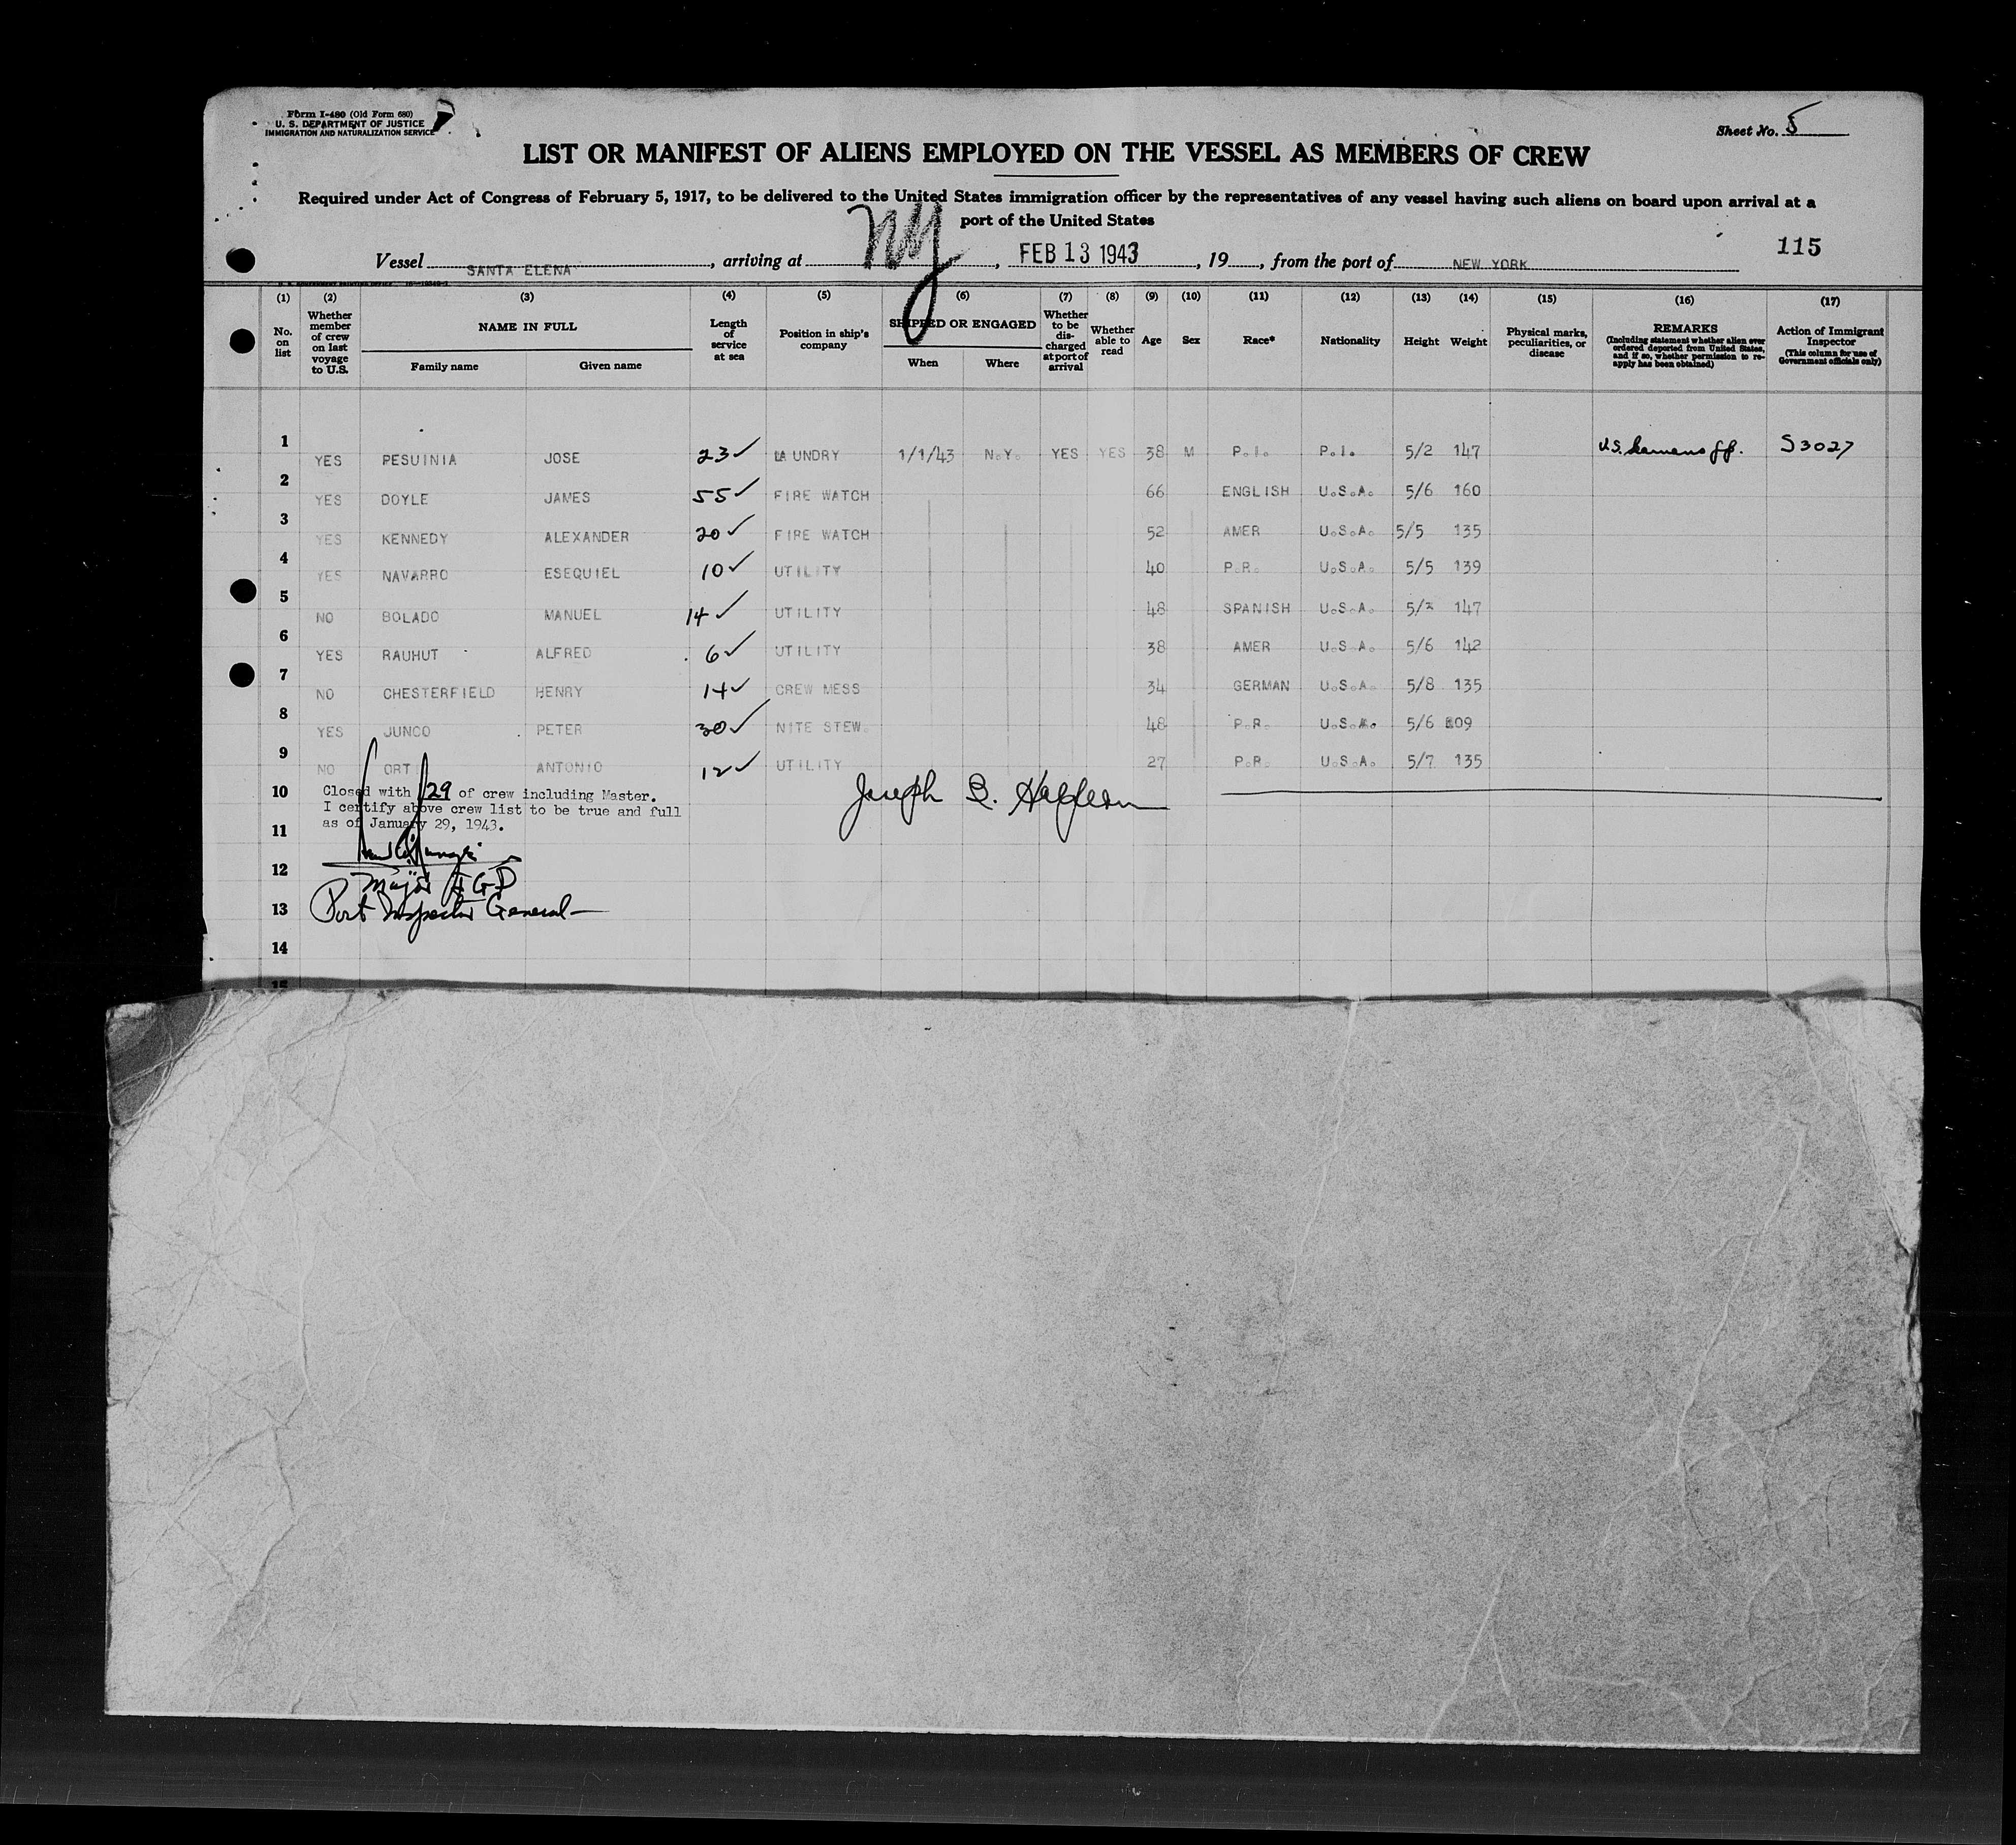 Form I-480 (Old Form 680)
U. S. DEPARTMENT OF JUSTICE
IMMIGRATION AND NATURALIZATION SERVICE
Sheet No. 5
LIST OR MANIFEST OF ALIENS EMPLOYED ON THE VESSEL AS MEMBERS OF CREW
Required under Act of Congress of February 5, 1917, to be delivered to the United States immigration officer by the representatives of any vessel having such aliens on board upon arrival at a
port of the United States
115
Vessel SANTA ELENA, arriving at NY, FEB 13 1943, 19, from the port of NEW YORK
(1) (2) (3) (4) (5) (6) (7) (8) (9) (10) (11) (12) (13) (14) (15) (16) (17)
No. on list
Whether member of crew on last voyage to U.S.
NAME IN FULL
Family name Given name
Length of service at sea
Position in ship's company
SHIPPED OR ENGAGED
When Where
Whether to be discharged at port of arrival
Whether able to read
Age
Sex
Race*
Nationality
Height
Weight
Physical marks, peculiarities, or disease
REMARKS
(Including statement whether alien ever ordered deported from United States, and if so, whether permission to re-apply has been obtained)
Action of Immigrant Inspector
(This column for use of Government officials only)
1 YES PESUINIA JOSE 23✓ LAUNDRY 1/1/43 N.Y. YES YES 38 M P.I. P.I. 5/2 147 U.S. S3027
2 YES DOYLE JAMES 55✓ FIRE WATCH 66 ENGLISH U.S.A. 5/6 160
3 YES KENNEDY ALEXANDER 20✓ FIRE WATCH 52 AMER U.S.A. 5/5 135
4 YES NAVARRO ESEQUIEL 10✓ UTILITY 40 P.R. U.S.A. 5/5 139
5 NO BOLADO MANUEL 14✓ UTILITY 48 SPANISH U.S.A. 147
6 YES RAUHUT ALFRED 6✓ UTILITY 38 AMER U.S.A. 5/6 142
7 NO CHESTERFIELD HENRY 14✓ CREW MESS 34 GERMAN U.S.A. 5/8 135
8 YES JUNCO PETER 30✓ NITE STEW. 48 P.R. U.S.A. 5/6 209
9 NO ORTI ANTONIO 12✓ UTILITY 27 P.R. U.S.A. 5/7 135
10 Closed with 129 of crew including Master.
I certify above crew list to be true and full
11 as of January 29, 1943.
Joseph B.
12 Major IGD
13 Port Inspector General
14
15